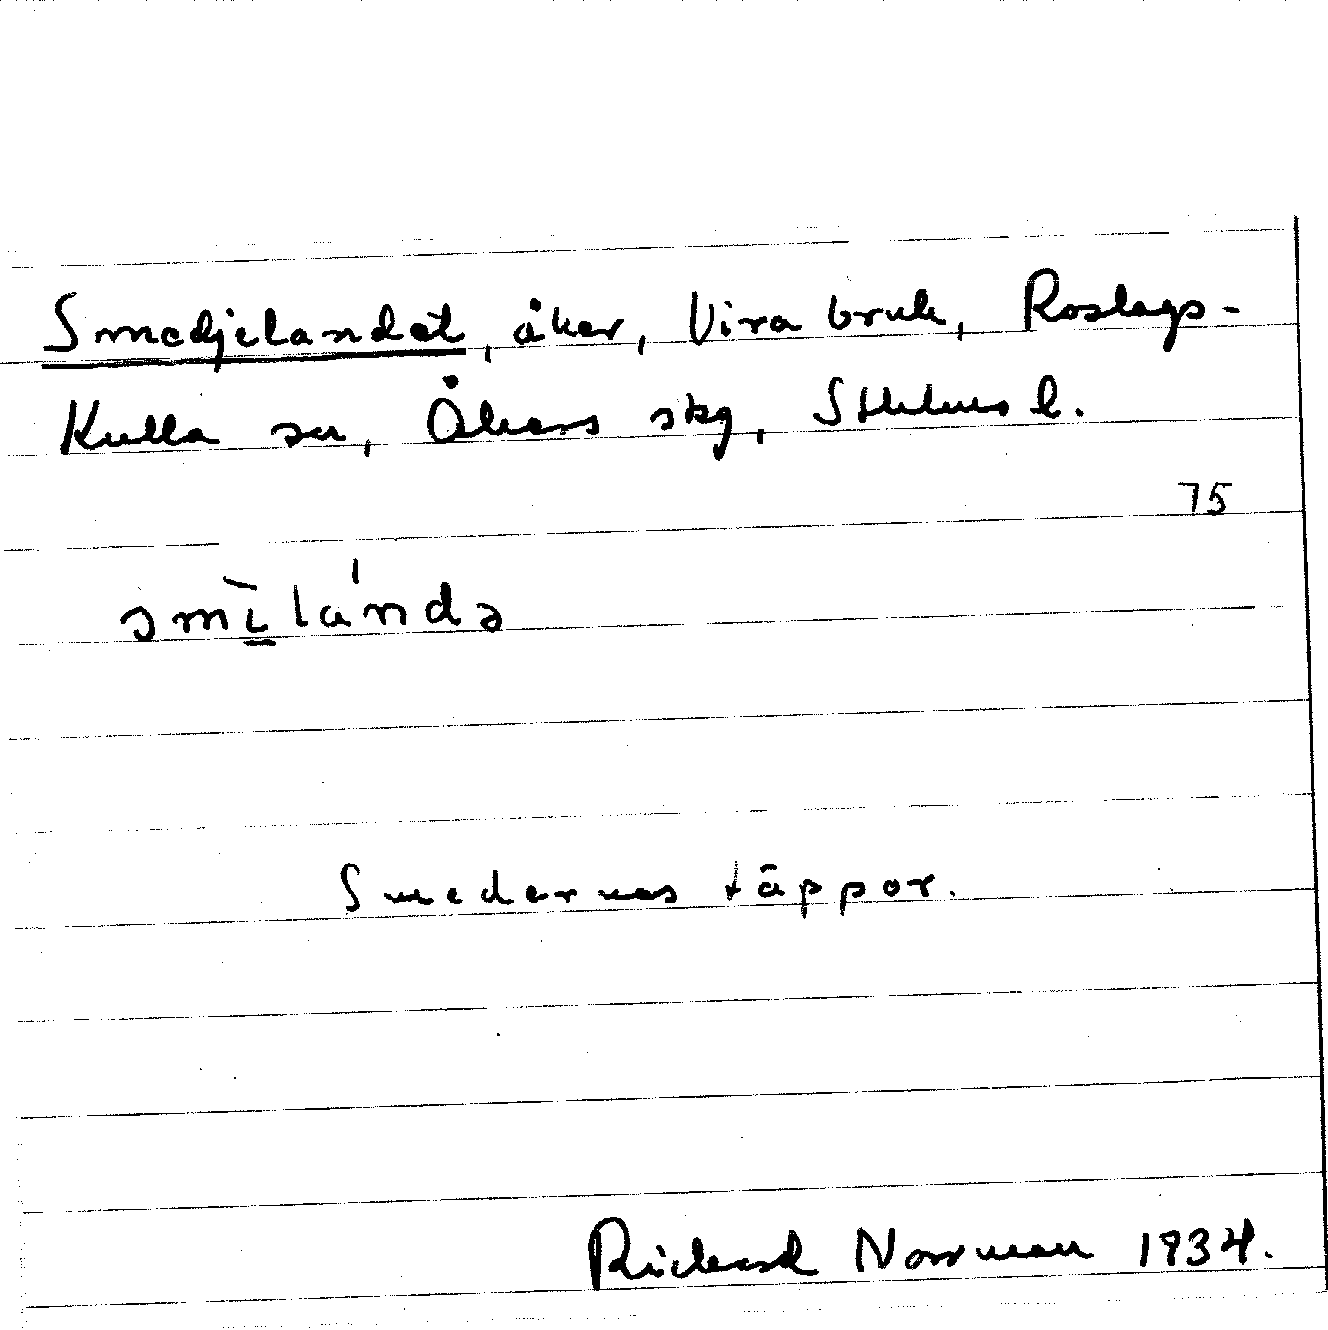 Smedjelandet, åker, Vira bruk, Roslags-
Kulla sn, Åkers skg, Sthlms l.
75
smì̲lándə
Smedernas täppor.
Rickard Norrman 1934.